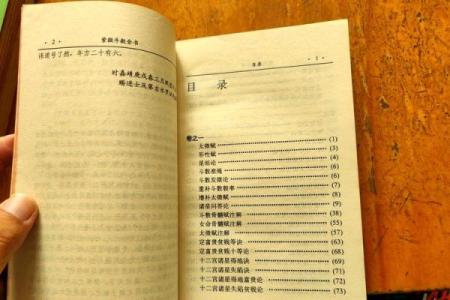 · 2 ·
紫微斗数全书
筏道号了然,年方二十有六。
时嘉靖庚戌春三月
赐进士及第吉水罗
目录
· 1 ·
目 录
卷之一
太微赋 (1)
形性赋 (3)
星垣论 (4)
斗数准绳 (6)
斗数发微论 (6)
重补斗数彀率 (7)
增补太微赋 (8)
诸星问答论 (9)
斗数骨髓赋注解 (38)
女命骨髓赋注解 (55)
太微赋注解 (57)
定富贵贫贱等诀 (63)
定富贵贫贱十等论 (68)
十二宫诸星得地诀 (69)
十二宫诸星失陷诀 (71)
十二宫诸星得地富贵论 (72)
十二宫诸星失陷贫贱论 (73)